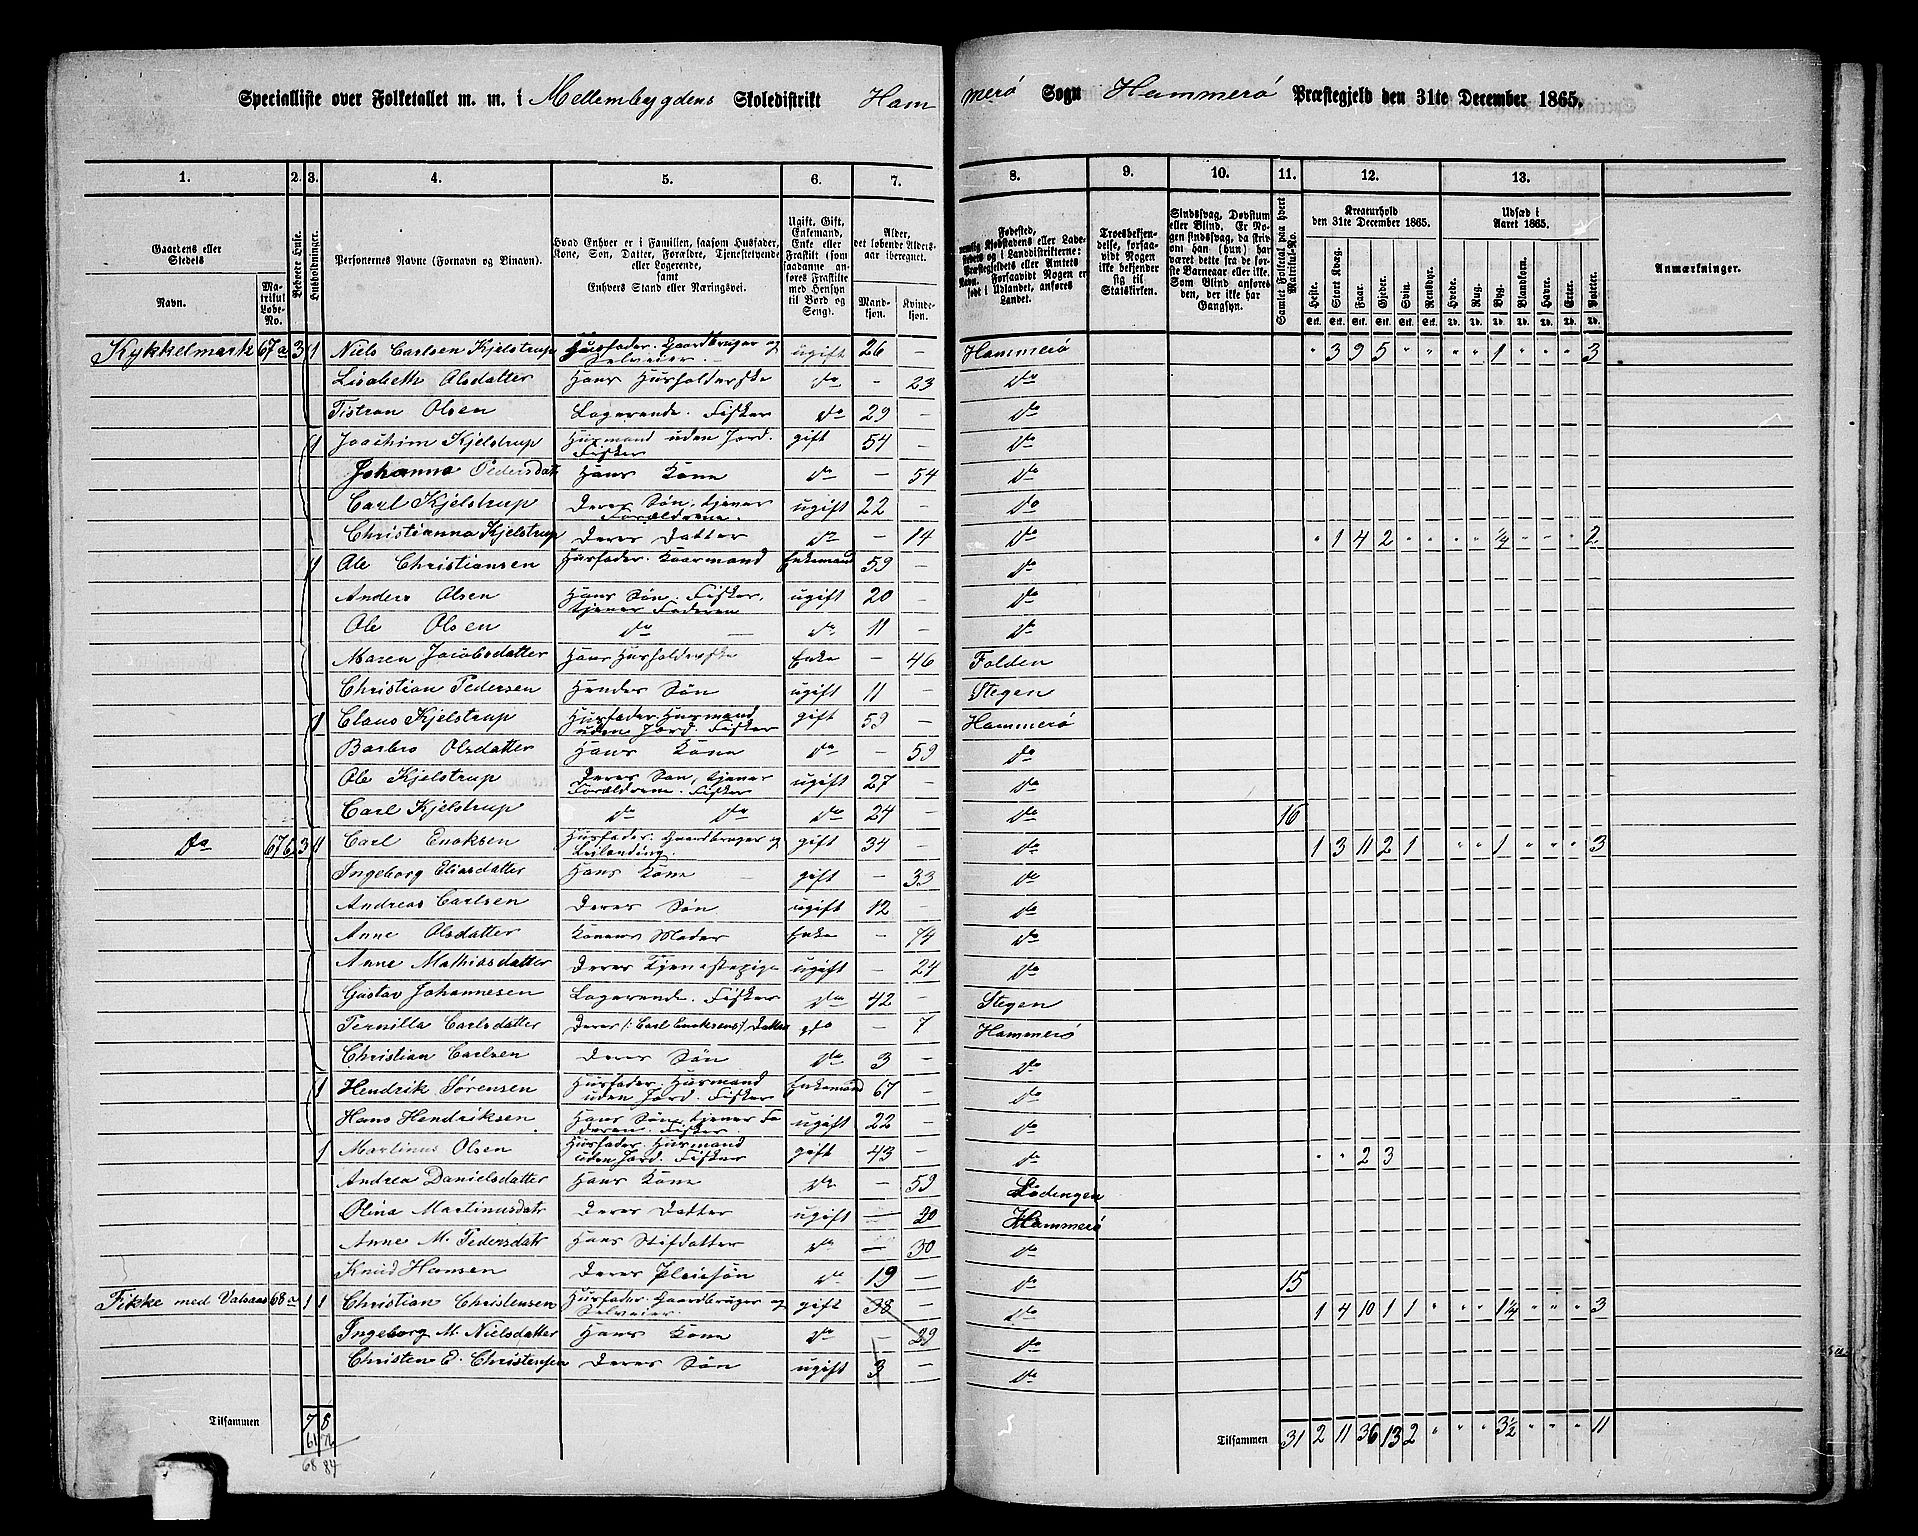 Specialliste over Folketallet m. m. i Mellembygdens Skoledistrikt Hammerø Sogn Hammerø Præstegjeld den 31te December 1865.
1. 2. 3. 4. 5. 6. 7. 8. 9. 10. 11. 12. 13.
Gaardens eller Stedets
Navn.
Matrikul Løbe-No.
Beboede Huse.
Husholdninger.
Personernes Navne (Fornavn og Binavn).
Hvad Enhver er i Familien, saasom Husfader, Kone, Søn, Datter, Forældre, Tjenestetyende eller Logerende,
samt
Enhvers Stand eller Næringsvei.
Ugift, Gift, Enkemand, Enke eller Fraskilt (som saadanne anføres Fraskilte med Hensyn til Bord og Seng).
Alder, det løbende Aldersaar iberegnet.
Mandkjøn.
Kvindekjøn.
Fødested,
Troesbekjendelse, forsaavidt Nogen ikke bekjender sig til Statskirken.
Sindssvag, Døvstum eller Blind. Er Nogen sindssvag, da skrives han (hun) har været dette fra de første Barneaar eller ikke. Som Blind anføres den, der ikke har Gangsyn.
Samlet Folketal paa hvert Matrikul-No.
Kreaturhold den 31te December 1865.
Heste. Stort Kvæg. Faar. Gjeder. Svin. Rensdyr.
Udsæd i Aaret 1865.
Hvede. Rug. Byg. Blandkorn. Havre. Erter. Poteter.
Anmærkninger.
Kykkelmark 67a 3 1 Niels Carlsen Kjelstrup Husfader. Gaardbruger og Selveier. ugift 26 – Hammerø " 3 9 5 " " " " 1 " " " 3
Lisabeth Olsdatter Hans Husholderske do – 23 do
Tistran Olsen Logerende. Fisker do 29 – do
1 Joachim Kjelstrup Husmand uden Jord. Fisker gift 54 – do
Johanna Pedersdatr Hans Kone do – 54 do
Carl Kjelstrup Deres Søn, tjener Forældrene. ugift 22 – do
Christianna Kjelstrup Deres Datter do – 14 do " 1 4 2 " " " " 1/4 " " " 2
1 Ole Christiansen Husfader. Kaarmand Enkemand 59 – do
Anders Olsen Hans Søn. Fisker, tjener Faderen ugift 20 – do
Ole Olsen do do 11 – do
Maren Jacobsdatter Hans Husholderske Enke – 46 Folden
Christian Pedersen Hendes Søn ugift 11 – Stegen
1 Claus Kjelstrup Husfader. Husmand uden Jord. Fisker gift 59 – Hammerø
Barbro Olsdatter Hans Kone do – 59 do
Ole Kjelstrup Deres Søn, tjener Forældrene. Fisker ugift 27 – do
Carl Kjelstrup do do do 24 – do 16
do 67b 3 1 Carl Enoksen Husfader. Gaardbruger og Leilending. gift 34 – do 1 3 11 2 1 " " 1 " " " 3
Ingeborg Eliasdatter Hans Kone gift – 33 do
Andreas Carlsen Deres Søn ugift 12 – do
Anne Olsdatter Konens Moder Enke – 74 do
Anne Mathiasdatter Deres Tjenestepige ugift – 24 do
Gustav Johannesen Logerende. Fisker do 42 – Stegen
Pernilla Carlsdatter Deres (: Carl Enoksens) Datter do – 7 Hammerø
Christian Carlsen Deres Søn do 3 – do
1 Hendrik Sørensen Husfader. Husmand uden Jord. Fisker Enkemand 67 – do
Hans Hendriksen Hans Søn, tjener Faderen. Fisker ugift 22 – do
1 Martinus Olsen Husfader. Husmand uden Jord. Fisker gift 43 – do " " 2 3
Andrea Danielsdatter Hans Kone do – 59 Lødingen
Olina Martinusdatr Deres Datter ugift – 20 Hammerø
Anne M. Pedersdatr Hans Stifdatter do – 30 do
Knud Hansen Deres Pleiesøn do 19 – do 15
Fikke med Valsaas 68a 1 1 Christian Christensen Husfader. Gaardbruger og Selveier. gift 38 – do 1 4 10 1 1 " " " 1 1/4 " " " 3
Ingeborg M. Nielsdatter Hans Kone do – 29 do
Christen E. Christensen Deres Søn ugift 3 – do
Tilsammen 7 8
61 76
68 84
Tilsammen 31 2 11 36 13 2 " " " 3 1/2 " " " 11